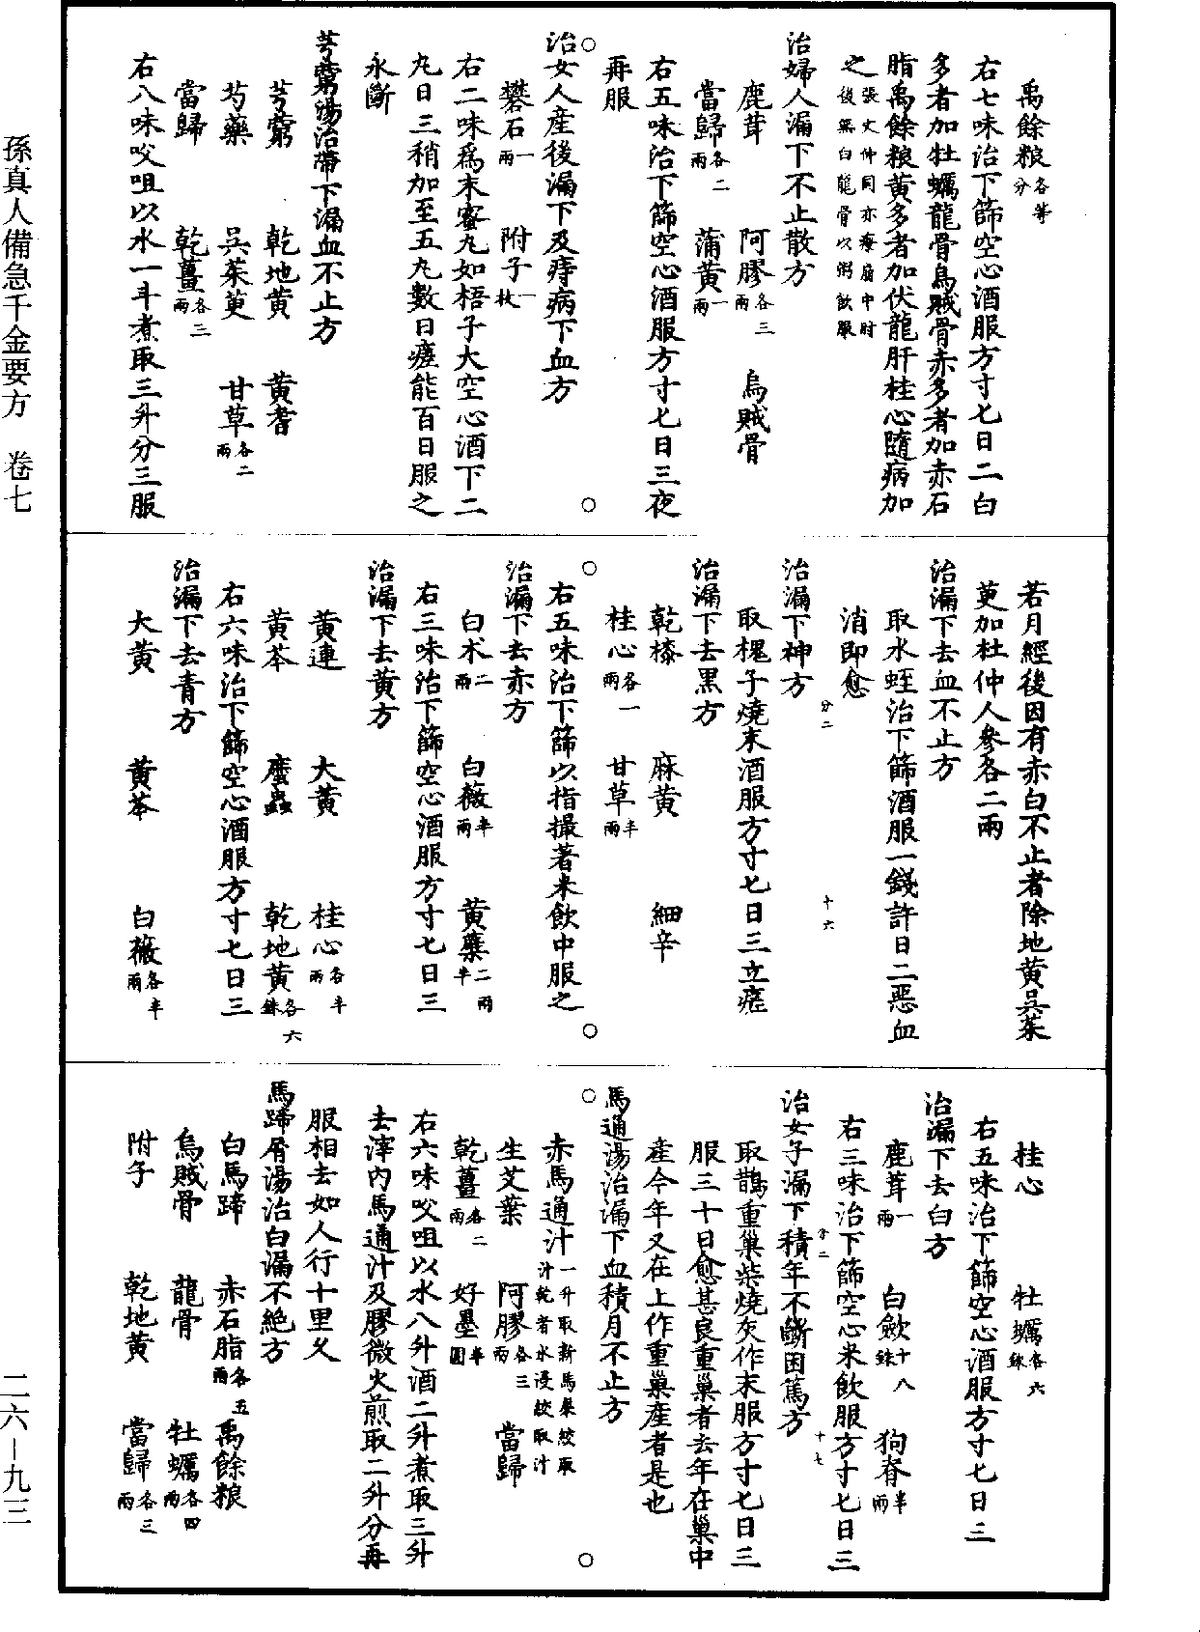 禹餘粮各等分
右七味治下篩空心酒服方寸匕日二白
多者加牡蠣龍骨烏賊骨赤多者加赤石
脂禹餘粮黃多者加伏龍肝桂心隨病加
之張文仲同亦療崩中肘後無白龍骨以粥飲服
治婦人漏下不止散方
鹿茸　阿膠各三兩　烏賊骨
當歸各二兩　蒲黃一兩
右五味治下篩空心酒服方寸匕日三夜
再服
治女人產後漏下及痔病下血方
礬石一兩　附子一枚
右二味爲末蜜丸如梧子大空心酒下二
丸日三稍加至五丸數日瘥能百日服之
永斷
芎藭湯治帶下漏血不止方
芎藭　乾地黃　黃耆
芍藥　吳茱萸　甘草各二兩
當歸　乾薑各三兩
右八味㕮咀以水一斗煮取三升分三服
若月經後因有赤白不止者除地黃吳茱
萸加杜仲人參各二兩
治漏下去血不止方
取水蛭治下篩酒服一錢許日二惡血
消即愈
分二　十六
治漏下神方
取槐子燒末酒服方寸匕日三立瘥
治漏下去黑方
乾漆　麻黃　細辛
桂心各一兩　甘草半兩
右五味治下篩以指撮著米飲中服之
治漏下去赤方
白朮二兩　白薇半兩　黃蘗二兩半
右三味治下篩空心酒服方寸匕日三
治漏下去黃方
黃連　大黃　桂心各半兩
黃芩　䗪蟲　乾地黃各六銖
右六味治下篩空心酒服方寸匕日三
治漏下去青方
大黃　黃芩　白薇各半兩
桂心　牡蠣各六銖
右五味治下篩空心酒服方寸匕日三
治漏下去白方
鹿茸一兩　白歛十八銖　狗脊半兩
右三味治下篩空心米飲服方寸匕日三
分二　十七
治女子漏下積年不斷困篤方
取鵲重巢柴燒灰作末服方寸匕日三
服三十日愈甚良重巢者去年在巢中
產今年又在上作重巢產者是也
馬通湯治漏下血積月不止方
赤馬通汁一升取新馬屎絞取汁乾者水浸絞取汁
生艾葉　阿膠各三兩　當歸
乾薑各二兩　好墨半圓
右六味㕮咀以水八升酒二升煮取三升
去滓內馬通汁及膠微火煎取二升分再
服相去如人行十里久
馬蹄屑湯治白漏不絕方
白馬蹄　赤石脂各五兩　禹餘粮
烏賊骨　龍骨　牡蠣各四兩
附子　乾地黃　當歸各三兩
孫真人備急千金要方　卷七
二六—九三